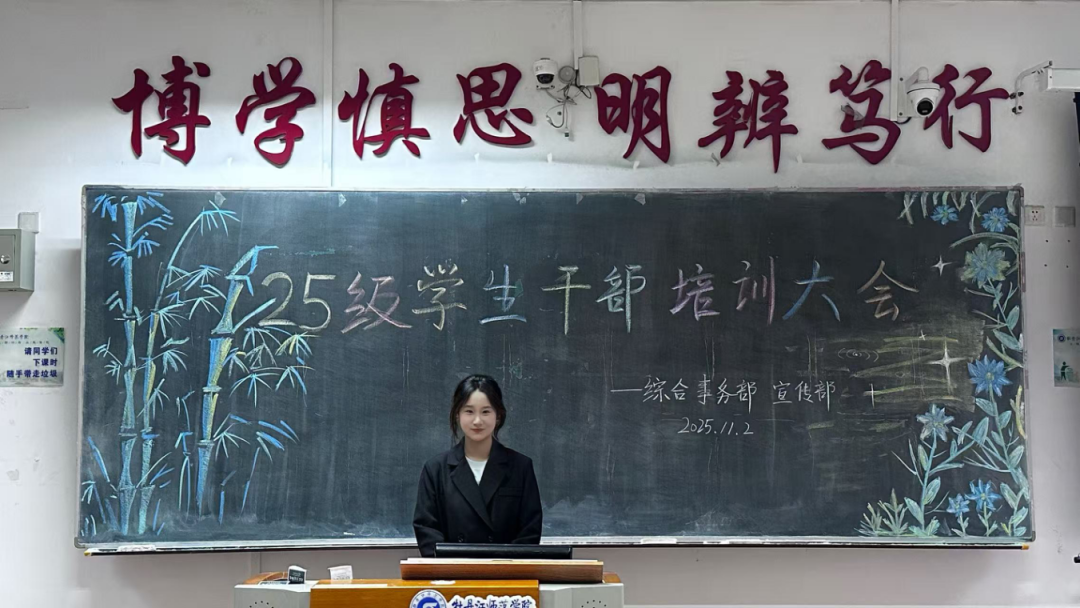 博学慎思明辨笃行
25级学生干部培训大会
—综合事务部 宣传部
2025.11.2
请同学们
下课时
随手带走垃圾
牡丹江师范学院